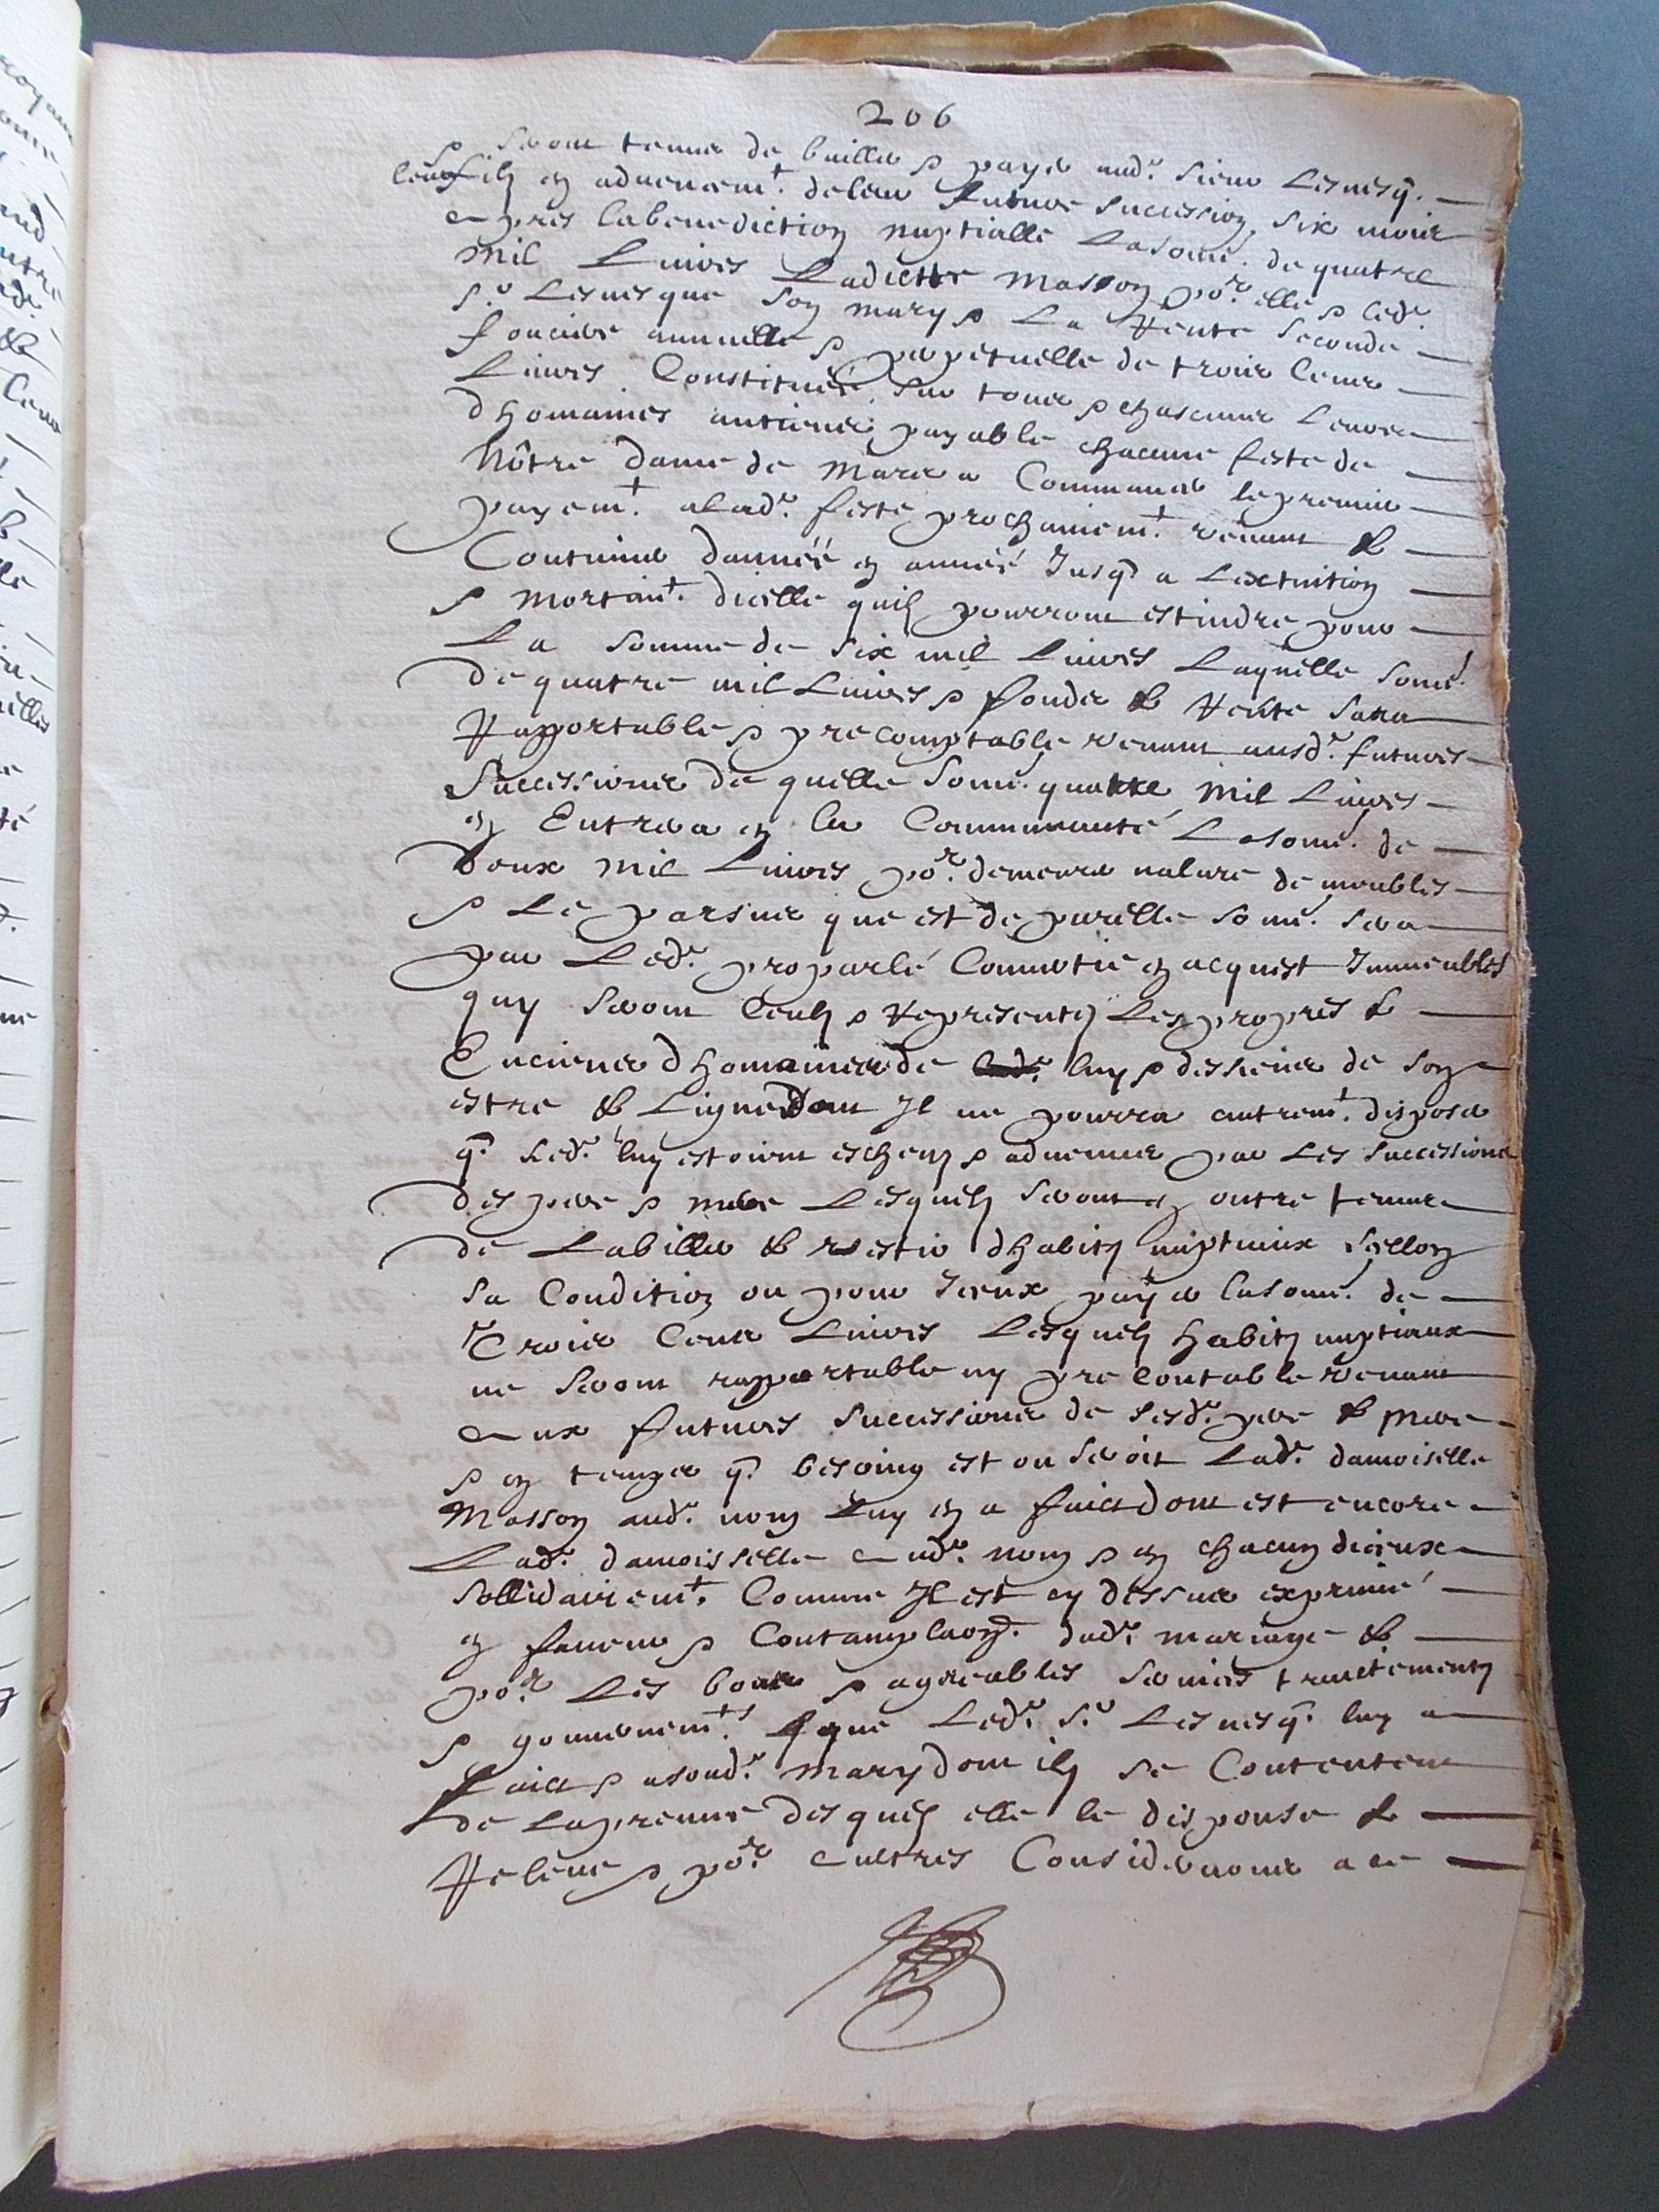 206
& seront tenus de bailler & payer aud.r sieur Lesnesq. —
leur filz en advencem.t de leur future succession six mois
apres la benediction nuptialle La som̃e de quatre
mil Livres Ladictte Masson po.r elle & led.r
s.r Lesnesque son mary & La Rente seconde —
fonciere annuelle & perpetuelle de trois Cents —
Livres Constituée sur tous & chascuns Leurs —
dhomaines antiens payable chacune feste de —
Nôtre dame de Mars a Commancer le premier —
payem.t a lad.r feste prochainem.t venant & —
Continuer dannéé en année Jusq. a Lextintion —
& mortam.t dicelle quilz pourront estindre pour —
La somme de six mil Livres Laquelle som̃e
de quatre mil Livres & fonds & Rente sera —
Raportable & precomptable venant ausd.r futures —
Successions de quelle som̃e quattre mil Livres —
en Entrera en la Communauté La som̃e de —
Deux mil Livres po.r demeurer nature de moubles —
& Le parsus que est de pareille som̃e sera —
par Led.r proparlé Converty en acquest Immeubles
quy seront Censz & Representez Les propres & —
Enciens dhomaines de luy & des siens de son
estre & Ligne Dont Jl ne pourra autrem.t disposer
q. sed.r luy estoient escheuz & advenus par Les successions
des pere & mere Lesquelz seront en outre tenus
de Labiller & vestir dhabitz nuptiaux sellon
sa Condition ou pour Iceux payer la som̃e de —
Trois Cents Livres Lesquelz habitz nuptiaux —
ne seront rapportable ny precontable venant
aux futures successions de sesd.r pere & mere
& en temps q. besoing est ou seroit Lad.r damoiselle
Masson aud.r nom luy en a faict dont est encore —
Lad.r damoisselle aud.r nom & en chacun diceux —
sollidairem.t Comme Jl est cy dessus exprimé —
en faveur & Contamplaon. dud.r mariage & —
po.r Les bons & agreables servises traictementz
& gouvernem.ts que Led.r s.r Lesnesq. luy a
faict & a soud.r mary dont ilz se Contentent
de La preuve desquelz elle le dispouse & —
Releve & po.r aultres Considerations a ce —